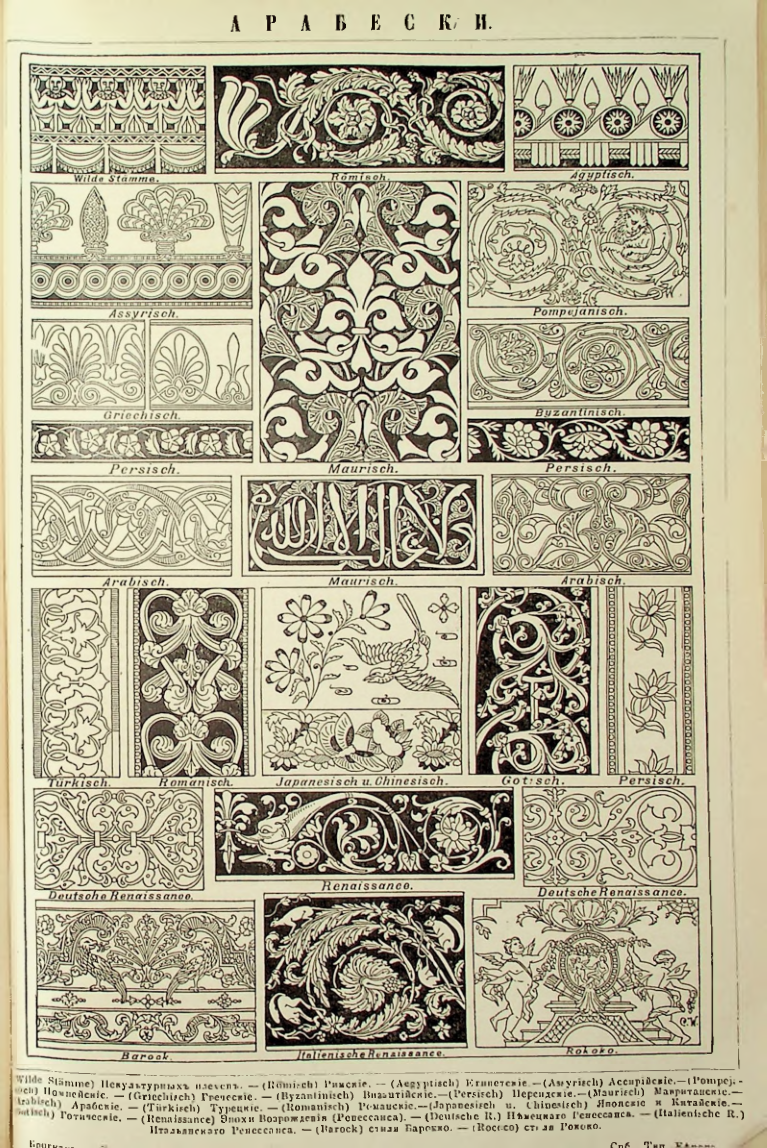 АРАБЕСКИ.
Wilde Stämme.
Römisch.
Agyptisch.
Assyrisch.
Pompejanisch.
Griechisch.
Byzantinisch.
Persisch.
Maurisch.
Persisch.
Arabisch.
Maurisch.
Arabisch.
Türkisch.
Romanisch.
Japanesisch u. Chinesisch.
Gotisch.
Persisch.
Deutsche Renaissance.
Renaissance.
Deutsche Renaissance.
Barock.
Italienische Renaissance.
Rokoko.
Wilde Stämme) Некультурныхъ племенъ. — (Römisch) Римскіе. — (Aegyptisch) Египетскіе. — (Assyrisch) Ассирійскіе. — (Pompej-
isch) Помпейскіе. — (Griechisch) Греческіе. — (Byzantinisch) Византійскіе. — (Persisch) Персидскіе. — (Maurisch) Мавританскіе. —
Arabisch) Арабскіе. — (Türkisch) Турецкіе. — (Romanisch) Романскіе. — (Japanesisch u. Chinesisch) Японскіе и Китайскіе. —
Gotisch) Готическіе. — (Renaissance) Эпохи Возрожденія (Ренессанса). — (Deutsche R.) Нѣмецкаго Ренессанса. — (Italienische R.)
Итальянскаго Ренессанса. — (Barock) стиля Барокко. — (Rococo) стиля Рококо.